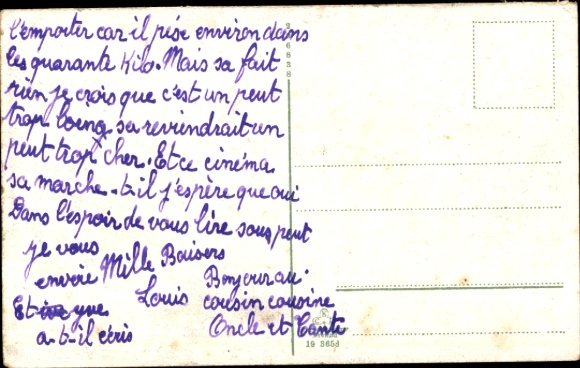 l'emporter car il pèse environ dans
les quarante Kilo. Mais sa fait
rien je crois que c'est un peut
trop loeng sa reviendrait un
peut trop cher. Et ce cinéma
sa marche-t-il j'espère que oui
Dans l'espoir de vous lire sous peut
je vous
envoie Mille Baisers
Louis
Bonjour au
cousin cousine
Oncle et Tante
Et yve
a-t-il écris
19 3658